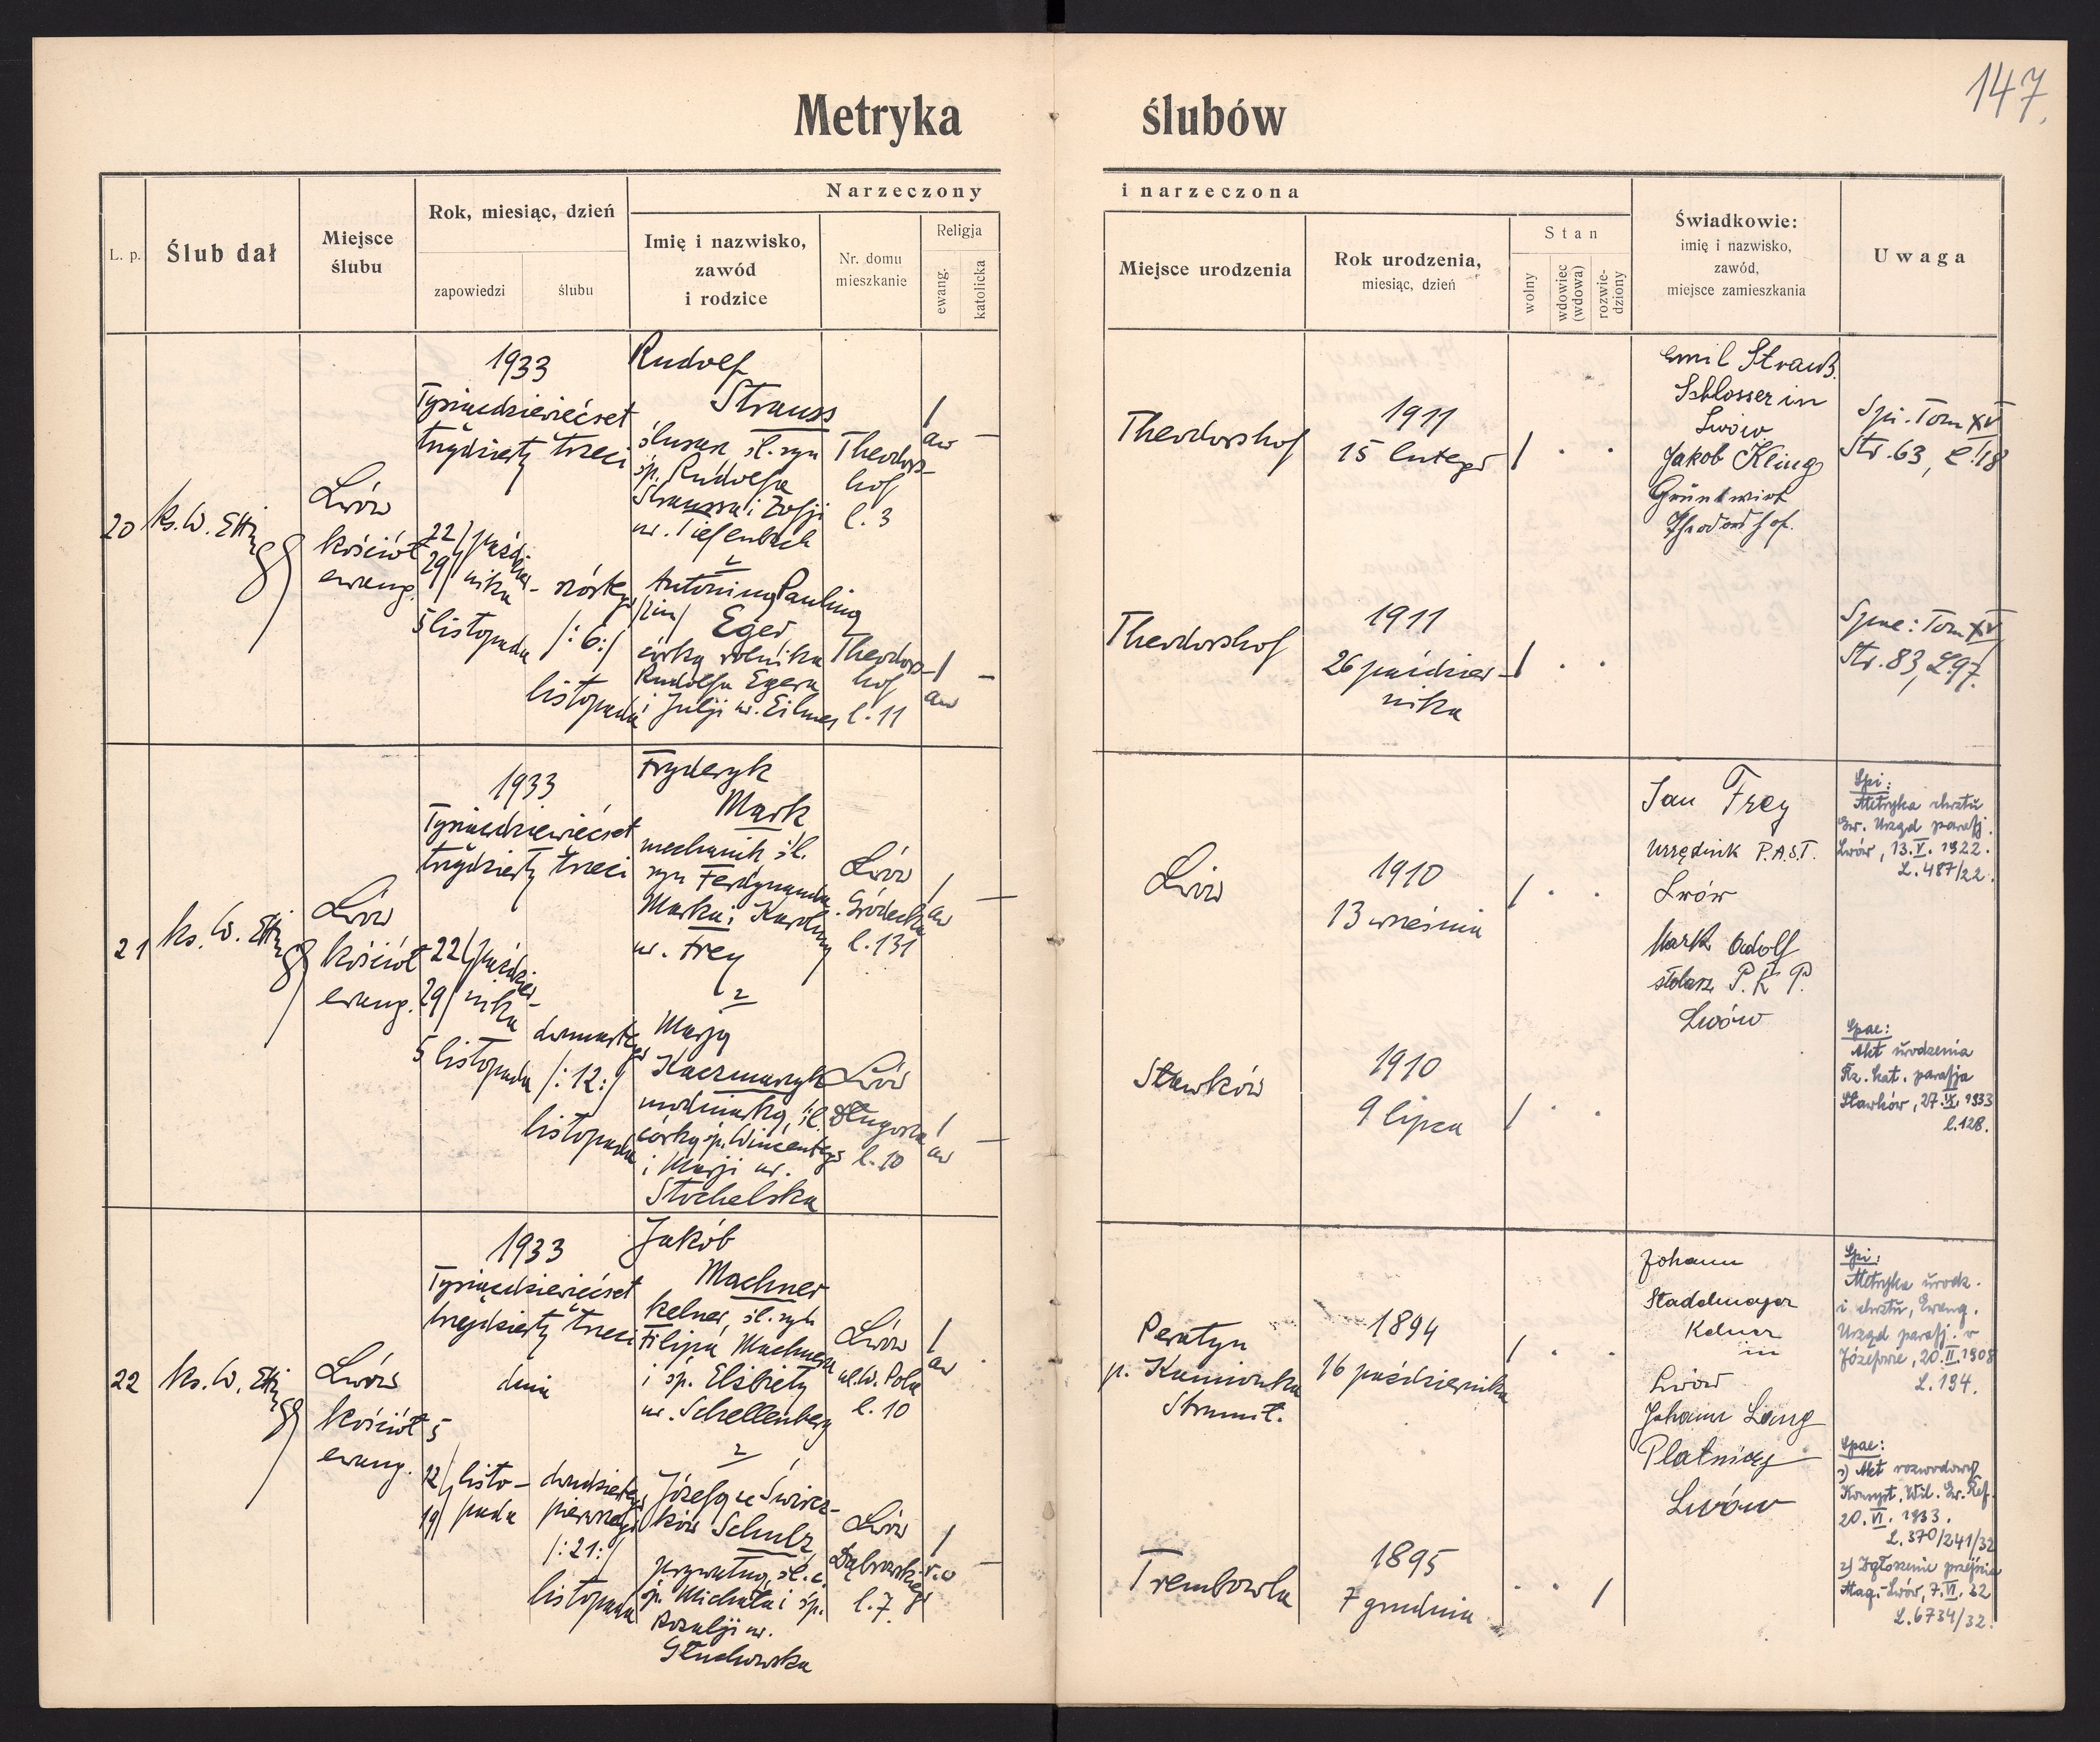 147.
Metryka ślubów
Narzeczony i narzeczona
L. p.
Ślub dał
Miejsce
ślubu
Rok, miesiąc, dzień
zapowiedzi
ślubu
Imię i nazwisko,
zawód
i rodzice
Nr. domu
mieszkanie
Religja
ewang.
katolicka
Miejsce urodzenia
Rok urodzenia,
miesiąc, dzień
Stan
wolny
wdowiec
(wdowa)
rozwie-
dziony
Świadkowie:
imię i nazwisko,
zawód,
miejsce zamieszkania
Uwaga
20
ks. W. Ettinger
Lwów
kościół
ewang.
1933
Tysiącdziewięćset
trzydziesty trzeci
22/ paździer-
29/ nika
5 listopada
szóstego
/:6:/
listopada
Rudolf
Strauss
ślusarz, śl. syn
śp. Rudolfa
Straussa i Zofji
ur. Tiefenbach
z
Antoniną Pauliną
/2im/
Eger
córką rolnika
Rudolfa Egera
i Julji ur. Eilmes
Theodors-
hof
l. 3
Theodors-
hof
l. 11
/
aw
—
/
aw
—
Theodorshof
1911
15 lutego
/ . .
Theodorshof
1911
26 paździer-
nika
/ . .
Emil Strauß.
Schlosser in
Lwów
Jakob Kling
Grundwirt
Theodorshof.
Spi. Tom XV
Str. 63, L. 18
Spae: Tom XV
Str. 83, L. 97.
21
ks. W. Ettinger
Lwów
kościół
ewang.
1933
Tysiącdziewięćset
trzydziesty trzeci
22/ paździer-
29/ nika
5 listopada
dwunastego
/:12:/
listopada
Fryderyk
Mark
mechanik, śl.
syn Ferdynanda
Marka i Karoliny
ur. Frey
z
Marją
Kaczmarzyk
modniarką, śl.
córką śp. Wincentego
i Marji ur.
Stochelska
Lwów
Gródecka
l. 131
Lwów
Długosza
l. 10
/
aw
—
/
aw
—
Lwów
1910
13 września
/ . .
Sławków
1910
9 lipca
/ . .
Jan Frey
Urzędnik P.A.S.T.
Lwów
Mark Adolf
stolarz P.K.P.
Lwów
Spi:
Metryka chrztu
Ew. Urząd parafj.
Lwów, 13.V. 1922.
L. 487/22.
Spae:
Akt urodzenia
Rz. kat. parafja
Sławków, 27.IX. 1933
l. 128.
22
ks. W. Ettinger
Lwów
kościół
ewang.
1933
Tysiącdziewięćset
trzydziesty trzeci
dnia
5
12/ listo-
19/ pada
dwudziestego
pierwszego
/:21:/
listopada
Jakób
Machner
kelner, śl. syn
Filipa Machnera
i śp. Elżbiety
ur. Schellenberg
z
Józefą ze Śwircz-
ków Schulz
prywatną, śl. c.
śp. Michała i śp.
Rozalji ur.
Głuchowska
Lwów
ul. W. Pola
l. 10
Lwów
Dąbrowskiego
l. 7.
/
aw
.
/
—
Peratyn
p. Kamionka
Strumił.
1894
16 października
/ . .
Trembowla
1895
7 grudnia
. . /
Johann
Stadelmajer
Kelner
in
Lwów
Johann Lang
Płatniczy
Lwów
Spi:
Metryka urodz.
i chrztu, Ewang.
Urząd parafj. w
Józefowie, 20.II.1908
L. 194.
Spae:
1) Akt rozwodowy
Konsyst. Wil. Ew. Ref.
20.VI. 1933.
L. 370/241/32
2) Zgłoszenie przejścia
Mag. Lwów, 7.VI. 32
L. 6734/32.